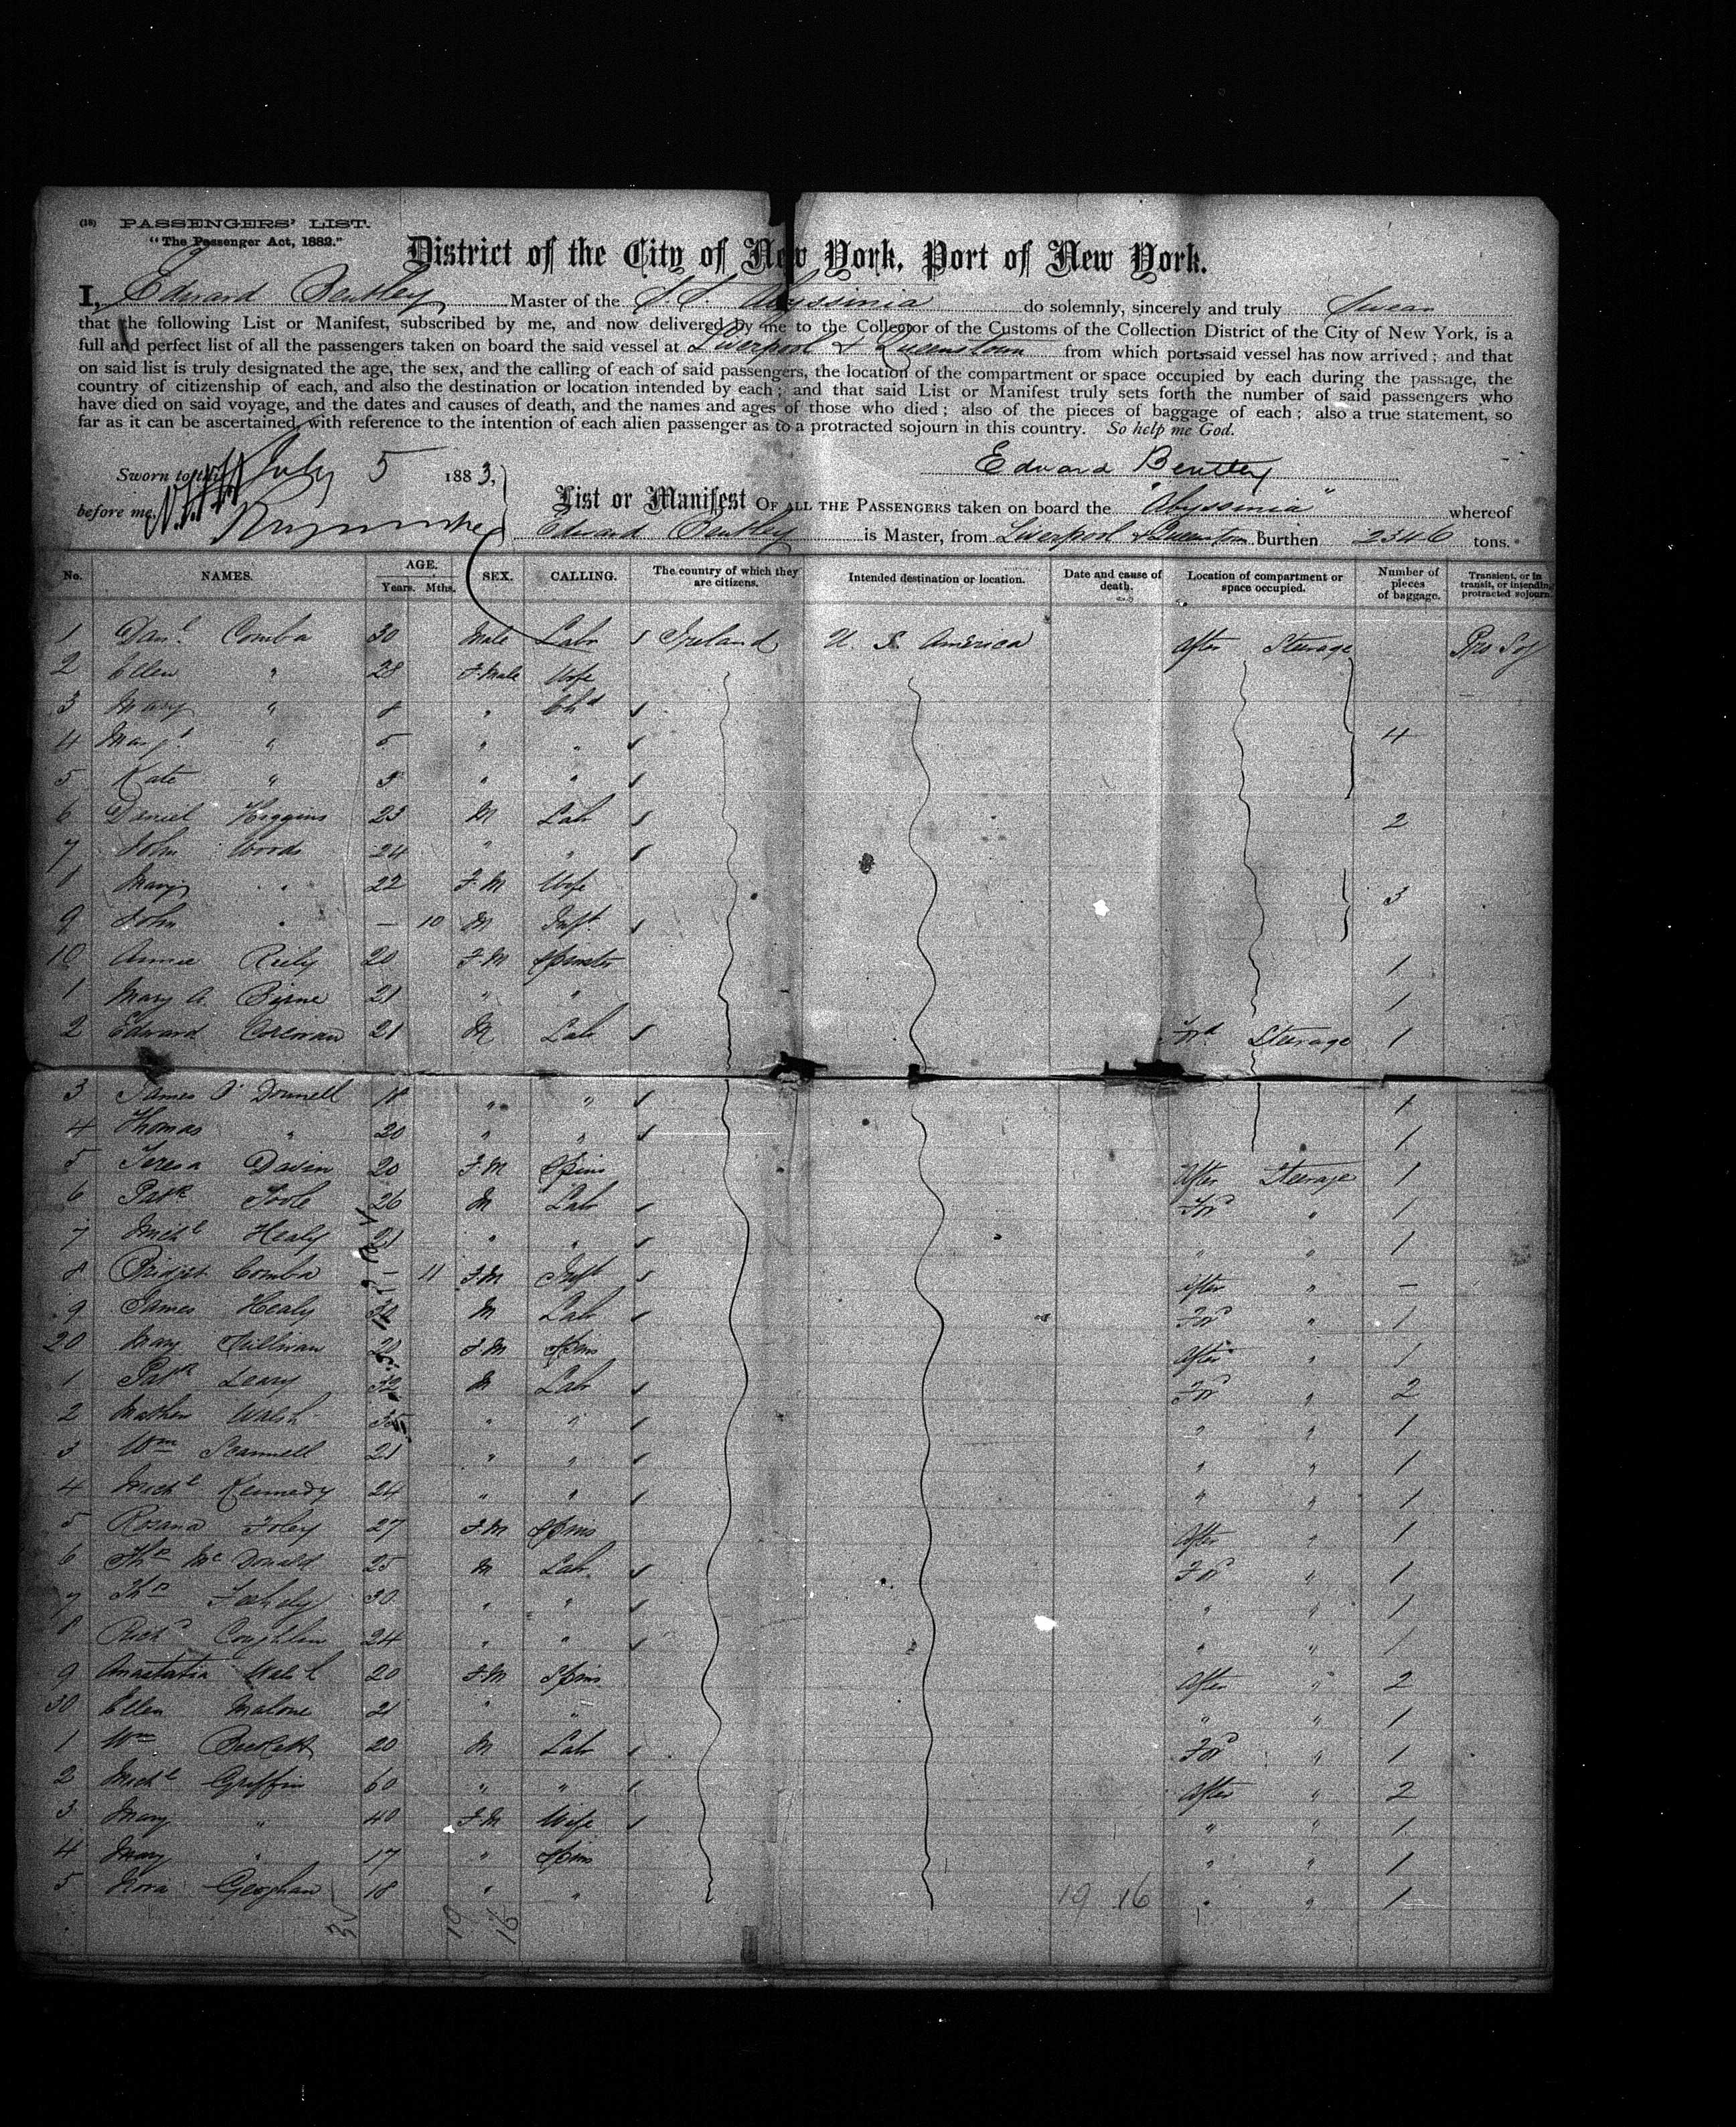 (18) PASSENGERS' LIST.
"The Passenger Act, 1882."
District of the City of New York, Port of New York.
I, Edward Bentley Master of the S.S. Abyssinia do solemnly, sincerely and truly Swear
that the following List or Manifest, subscribed by me, and now delivered by me to the Collector of the Customs of the Collection District of the City of New York, is a
full and perfect list of all the passengers taken on board the said vessel at Liverpool & Queenstown from which port said vessel has now arrived; and that
on said list is truly designated the age, the sex, and the calling of each of said passengers, the location of the compartment or space occupied by each during the passage, the
country of citizenship of each, and also the destination or location intended by each; and that said List or Manifest truly sets forth the number of said passengers who
have died on said voyage, and the dates and causes of death, and the names and ages of those who died; also of the pieces of baggage of each; also a true statement, so
far as it can be ascertained, with reference to the intention of each alien passenger as to a protracted sojourn in this country. So help me God.
Sworn to this July 5 1883, Edward Bentley
before me
List or Manifest OF ALL THE PASSENGERS taken on board the "Abyssinia" whereof
Edward Bentley is Master, from Liverpool & Queenstown Burthen 2346 tons.
No. NAMES. AGE. Years. Mths. SEX. CALLING. The country of which they are citizens. Intended destination or location. Date and cause of death. Location of compartment or space occupied. Number of pieces of baggage. Transient, or in transit, or intending protracted sojourn.
1 Danl Comba 30 Male Labr Ireland U. S. America After Steerage Pro Soj
2 Ellen " 28 F.Male Wife
3 Mary " 8 " Chd
4 Margt " 5 " " 4
5 Kate " 3 " "
6 Daniel Higgins 23 M Labr 2
7 John Woods 24 " "
8 Mary " 22 F.M Wife 3
9 John " — 10 M Inft
10 Annie Reily 20 F.M Spinster 1
1 Mary A Birne 21 " " 1
2 Edward Corcoran 21 M Labr Ford Steerage 1
3 James O'Donnell 18 " " 1
4 Thomas " 20 " " 1
5 Teresa Davin 20 F.M Spins After Steerage 1
6 Patk Toole 26 M Labr For " 1
7 Michl Healy 21 " " " " 1
8 Bridget Comba — 11 F.M Inft After " —
9 James Healy 30 M Labr For " 1
20 Mary Sullivan 20 F.M Spins After " 1
1 Patk Leary 32 M Labr For " 2
2 Mathew Walsh 35 " " " " 1
3 Wm Scannell 21 " " " " 1
4 Michl Kennedy 24 " " " " 1
5 Rosana Foley 27 F.M Spins After " 1
6 Ths McDonald 25 M Labr For " 1
7 Ths 30 " " " " 1
8 Richd Coughlan 24 " " " " 1
9 Anastatia Walsh 20 F.M Spins After " 2
30 Ellen Malone 21 " " " " 1
1 Wm Beckett 20 M Labr For " 1
2 Michl Griffin 60 " " After " 2
3 Mary " 40 F.M Wife " " 1
4 Mary " 17 " Spins " " 1
5 Nora Geoghan 18 " " 19 16 " " 1
19 16